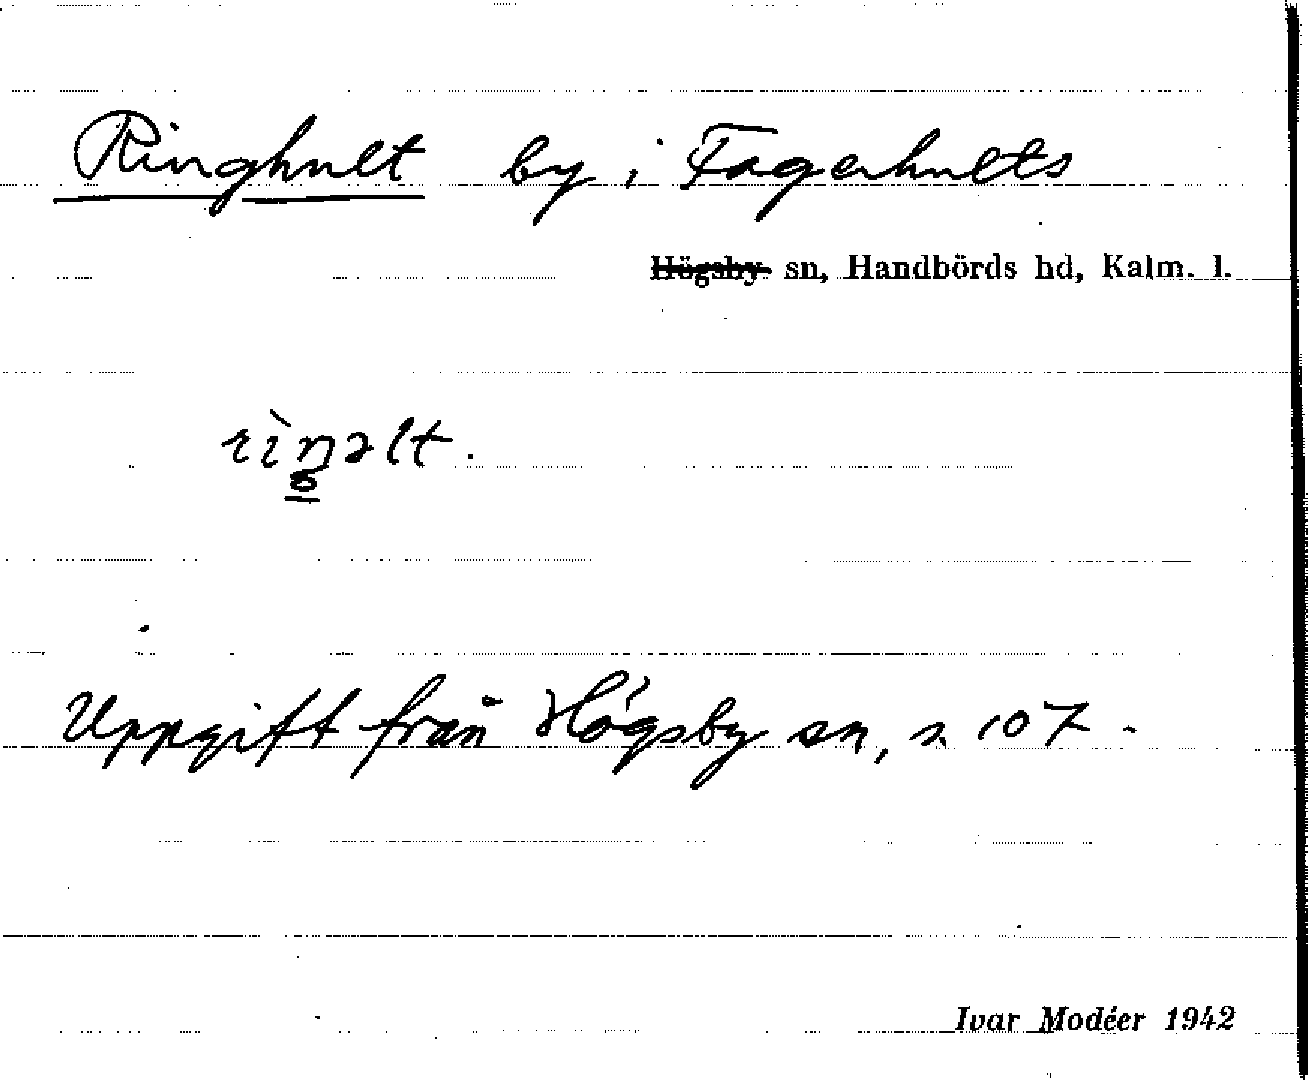 Ringhult by i Fagerhults
Högsby sn, Handbörds hd, Kalm. l.
rìŋəlt.
Uppgift från Högsby sn, s. 107.
Ivar Modéer 1942